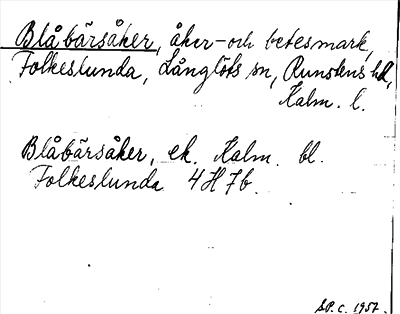 Blåbärsåker, åker- och betesmark,
Folkeslunda, Långlöts sn, Runstens hd,
Kalm. l.
Blåbärsåker, ek. Kalm. bl.
Folkeslunda 4H7b.
S.P.C. 1957.